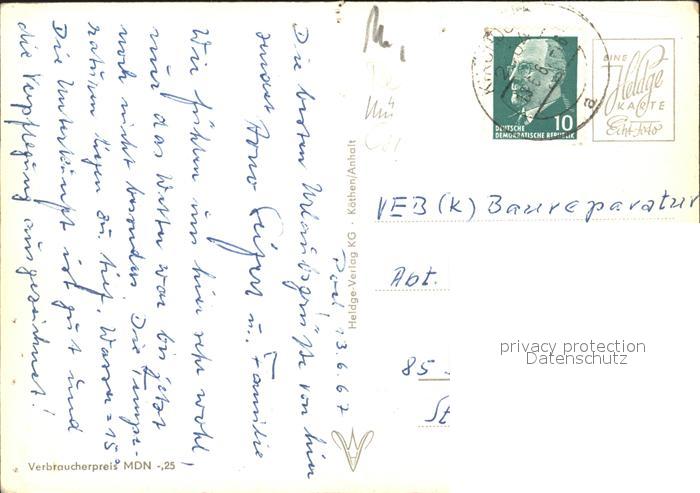 Poel, 13.6.67
Die besten Urlaubsgrüße von hier
sendet Arno Seifert u. Familie
Wir fühlen uns hier sehr wohl,
nur das Wetter war bis jetzt
noch nicht besonders. Die Tempe-
raturen liegen zu tief. Wasser = 15°
Die Unterkunft ist gut und
die Verpflegung ausgezeichnet!
Verbraucherpreis MDN -,25
Heldge-Verlag KG · Köthen/Anhalt
DEUTSCHE
DEMOKRATISCHE REPUBLIK
10
EINE
Heldge
KARTE
Echt-Foto
VEB (K) Baureparatur
Abt.
85
St
privacy protection
Datenschutz